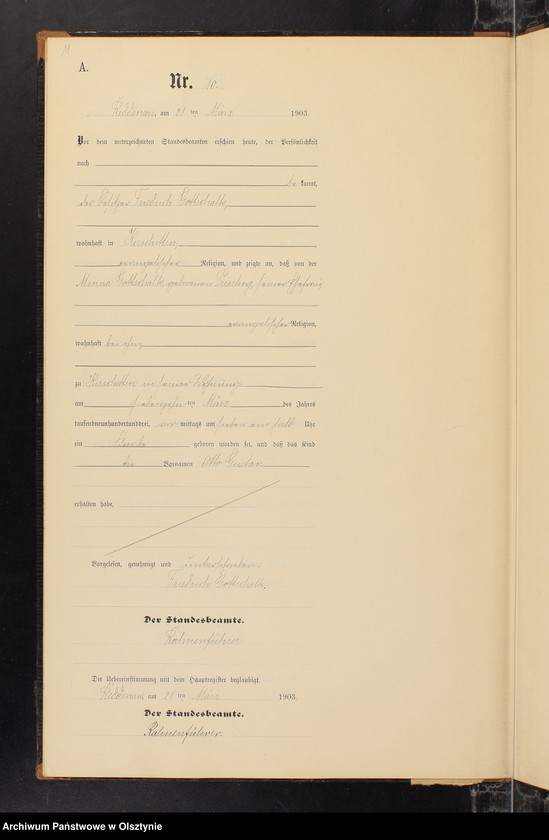 A.
Nr. 10.
am 21 ten März 1903.
Vor dem unterzeichneten Standesbeamten erschien heute, der Persönlichkeit
nach
be kannt,
der Besitzer Friedrich Gottschalk,
wohnhaft in
evangelischer Religion, und zeigte an, daß von der
Minna Gottschalk geborenen seiner Ehefrau
evangelischer Religion,
wohnhaft bei ihm,
zu in seiner Wohnung
am siebenzehn ten März des Jahres
tausendneunhundertunddrei, vor mittags um sieben ein halb Uhr
ein Knabe geboren worden sei, und daß das Kind
die Vornamen Otto Gustav
erhalten habe,
Vorgelesen, genehmigt und unterschrieben.
Friedrich Gottschalk.
Der Standesbeamte.
Kalmenführer
Die Uebereinstimmung mit dem Hauptregister beglaubigt.
am 21 ten März 1903.
Der Standesbeamte.
Archiwum Państwowe w Olsztynie